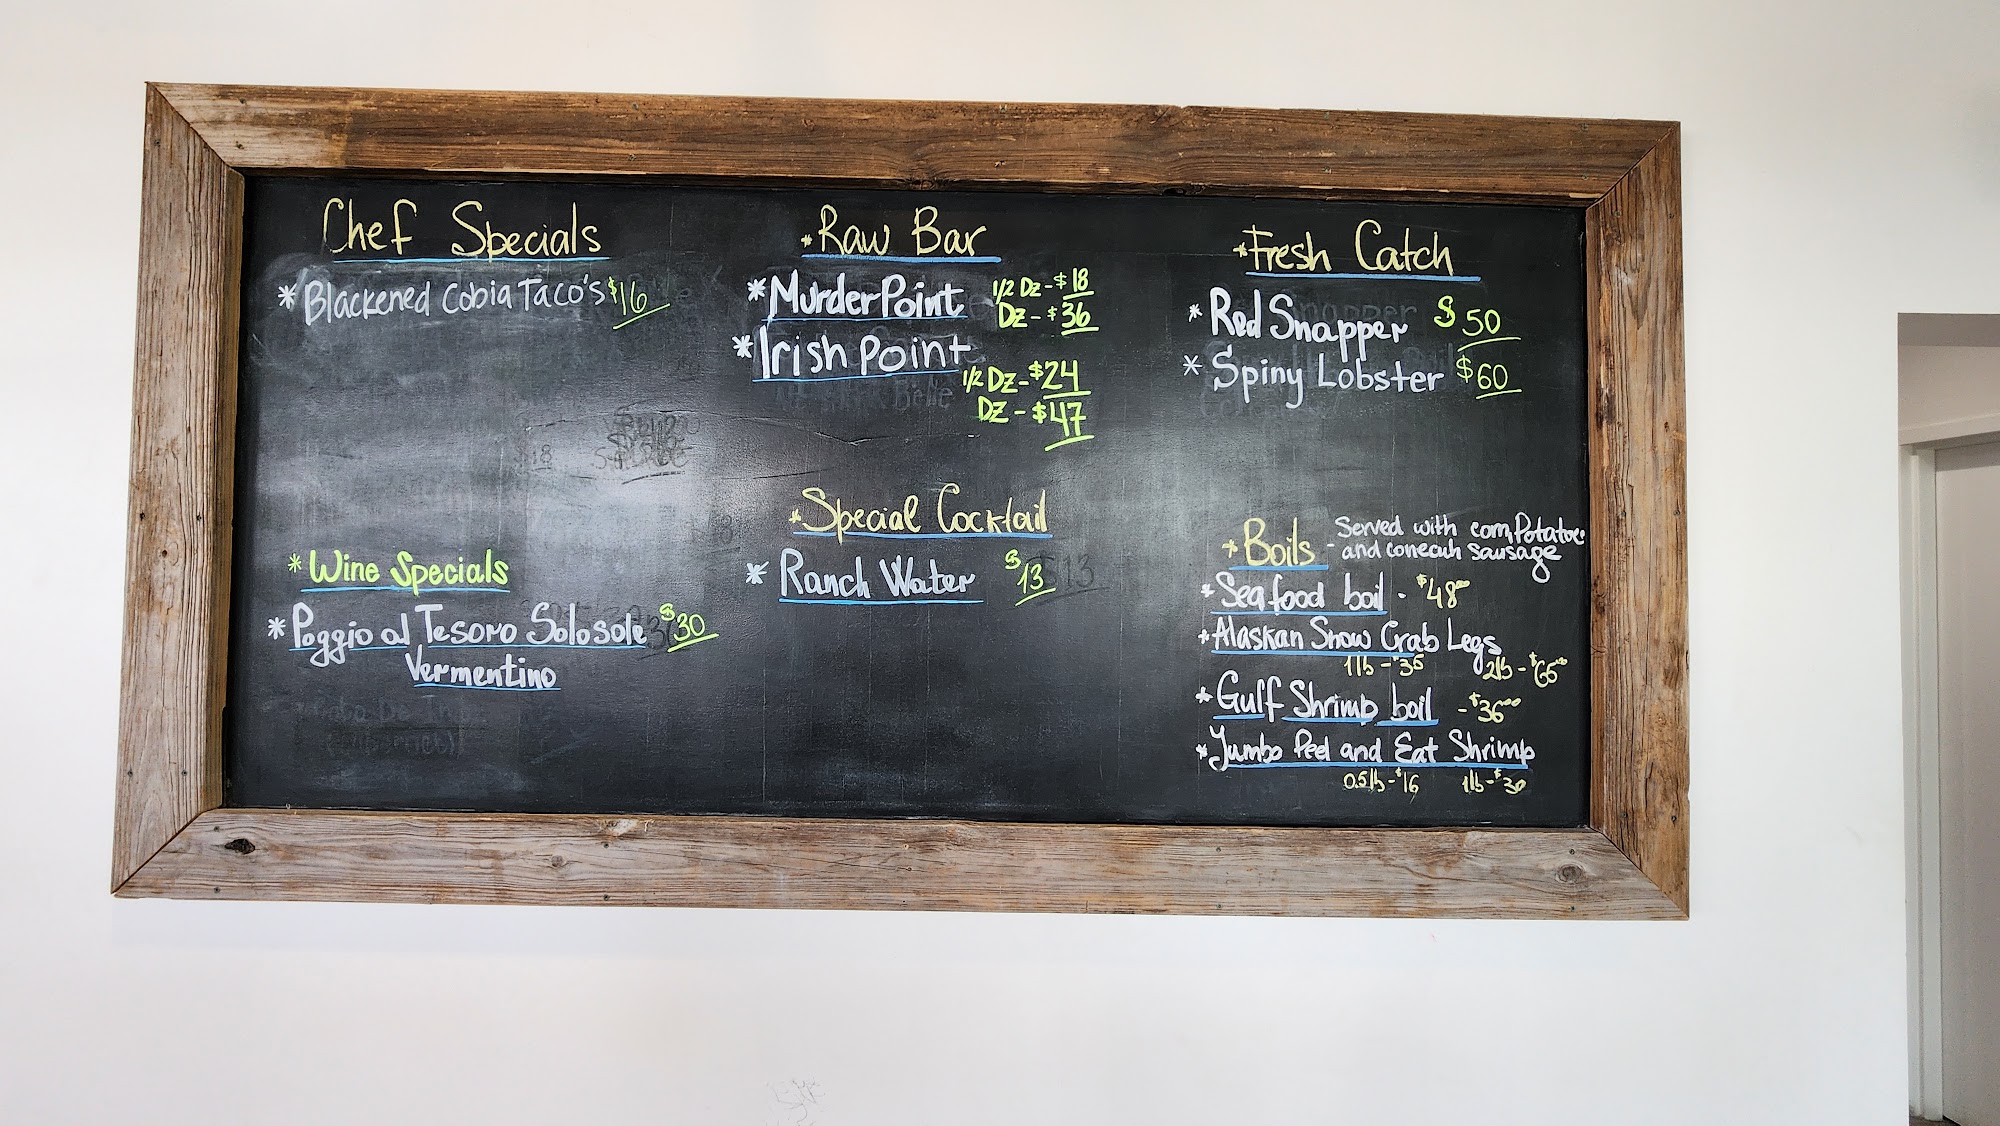 Chef Specials
* Blackened Cobia Taco's $16
* Wine Specials
* Poggio al Tesoro Solosole $30
Vermentino
* Raw Bar
* Murder Point 1/2 Dz - $18
Dz - $36
* Irish Point
1/2 Dz - $24
Dz - $47
* Special Cocktail
* Ranch Water $13
* Fresh Catch
* Red Snapper $50
* Spiny Lobster $60
* Boils - Served with corn, Potatoes
and conecuh sausage
* Seafood boil - $48.00
* Alaskan Snow Crab Legs
1lb - $35 2lb - $65.00
* Gulf Shrimp boil - $36.00
* Jumbo Peel and Eat Shrimp
0.5lb - $16 1lb - $30